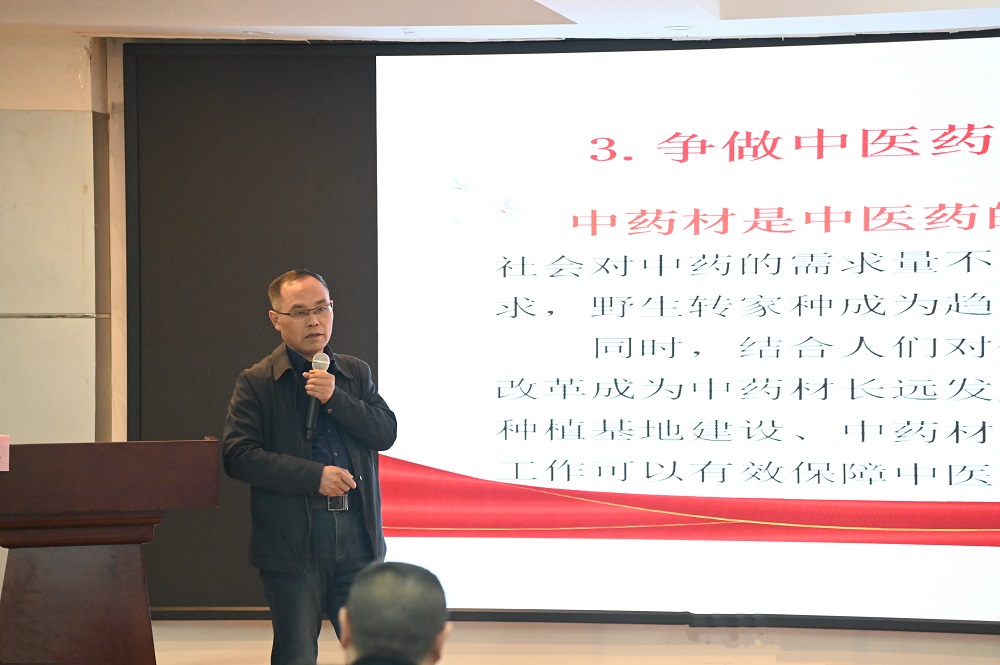 3. 争做中医药
中药材是中医药的
社会对中药的需求量不
求，野生转家种成为趋
同时，结合人们对
改革成为中药材长远发
种植基地建设、中药材
工作可以有效保障中医